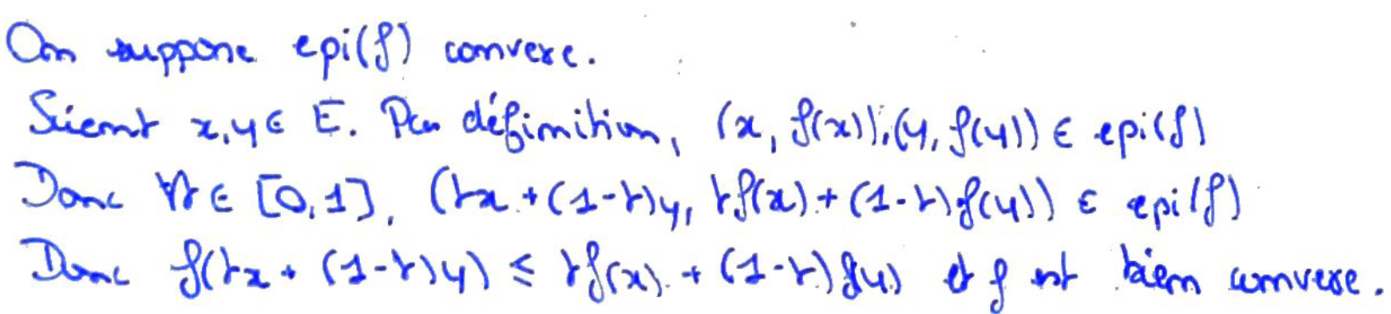 On suppose epi(f) convexe.
Soient x,y ∈ E. Par définition, (x, f(x)),(y, f(y)) ∈ epi(f)
Donc ∀t ∈ [0,1], (tx + (1-t)y, tf(x) + (1-t)f(y)) ∈ epi(f)
Donc f(tx + (1-t)y) ≤ tf(x) + (1-t)f(y) et f est bien convexe.